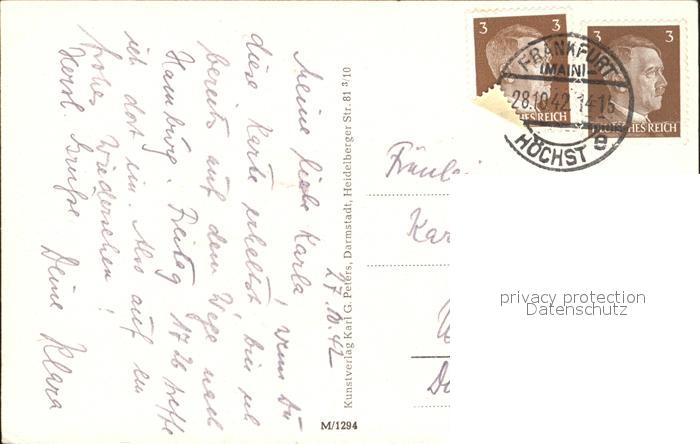 27.10.42
Meine liebe Karla, wenn Du
diese Karte erhältst, bin ich
bereits auf dem Wege nach
Hamburg. Freitag 17 26 treffe
ich dort ein. Also auf ein
frohes Wiedersehen!
Herzl. Grüße Deine Klara
Kunstverlag Karl G. Peters, Darmstadt, Heidelberger Str. 81 3/10
M/1294
3
3 3
FRANKFURT
(MAIN)
28.10.42 14-15
HÖCHST
HES REICH
HES REICH
Fräul
Kar
privacy protection
Datenschutz